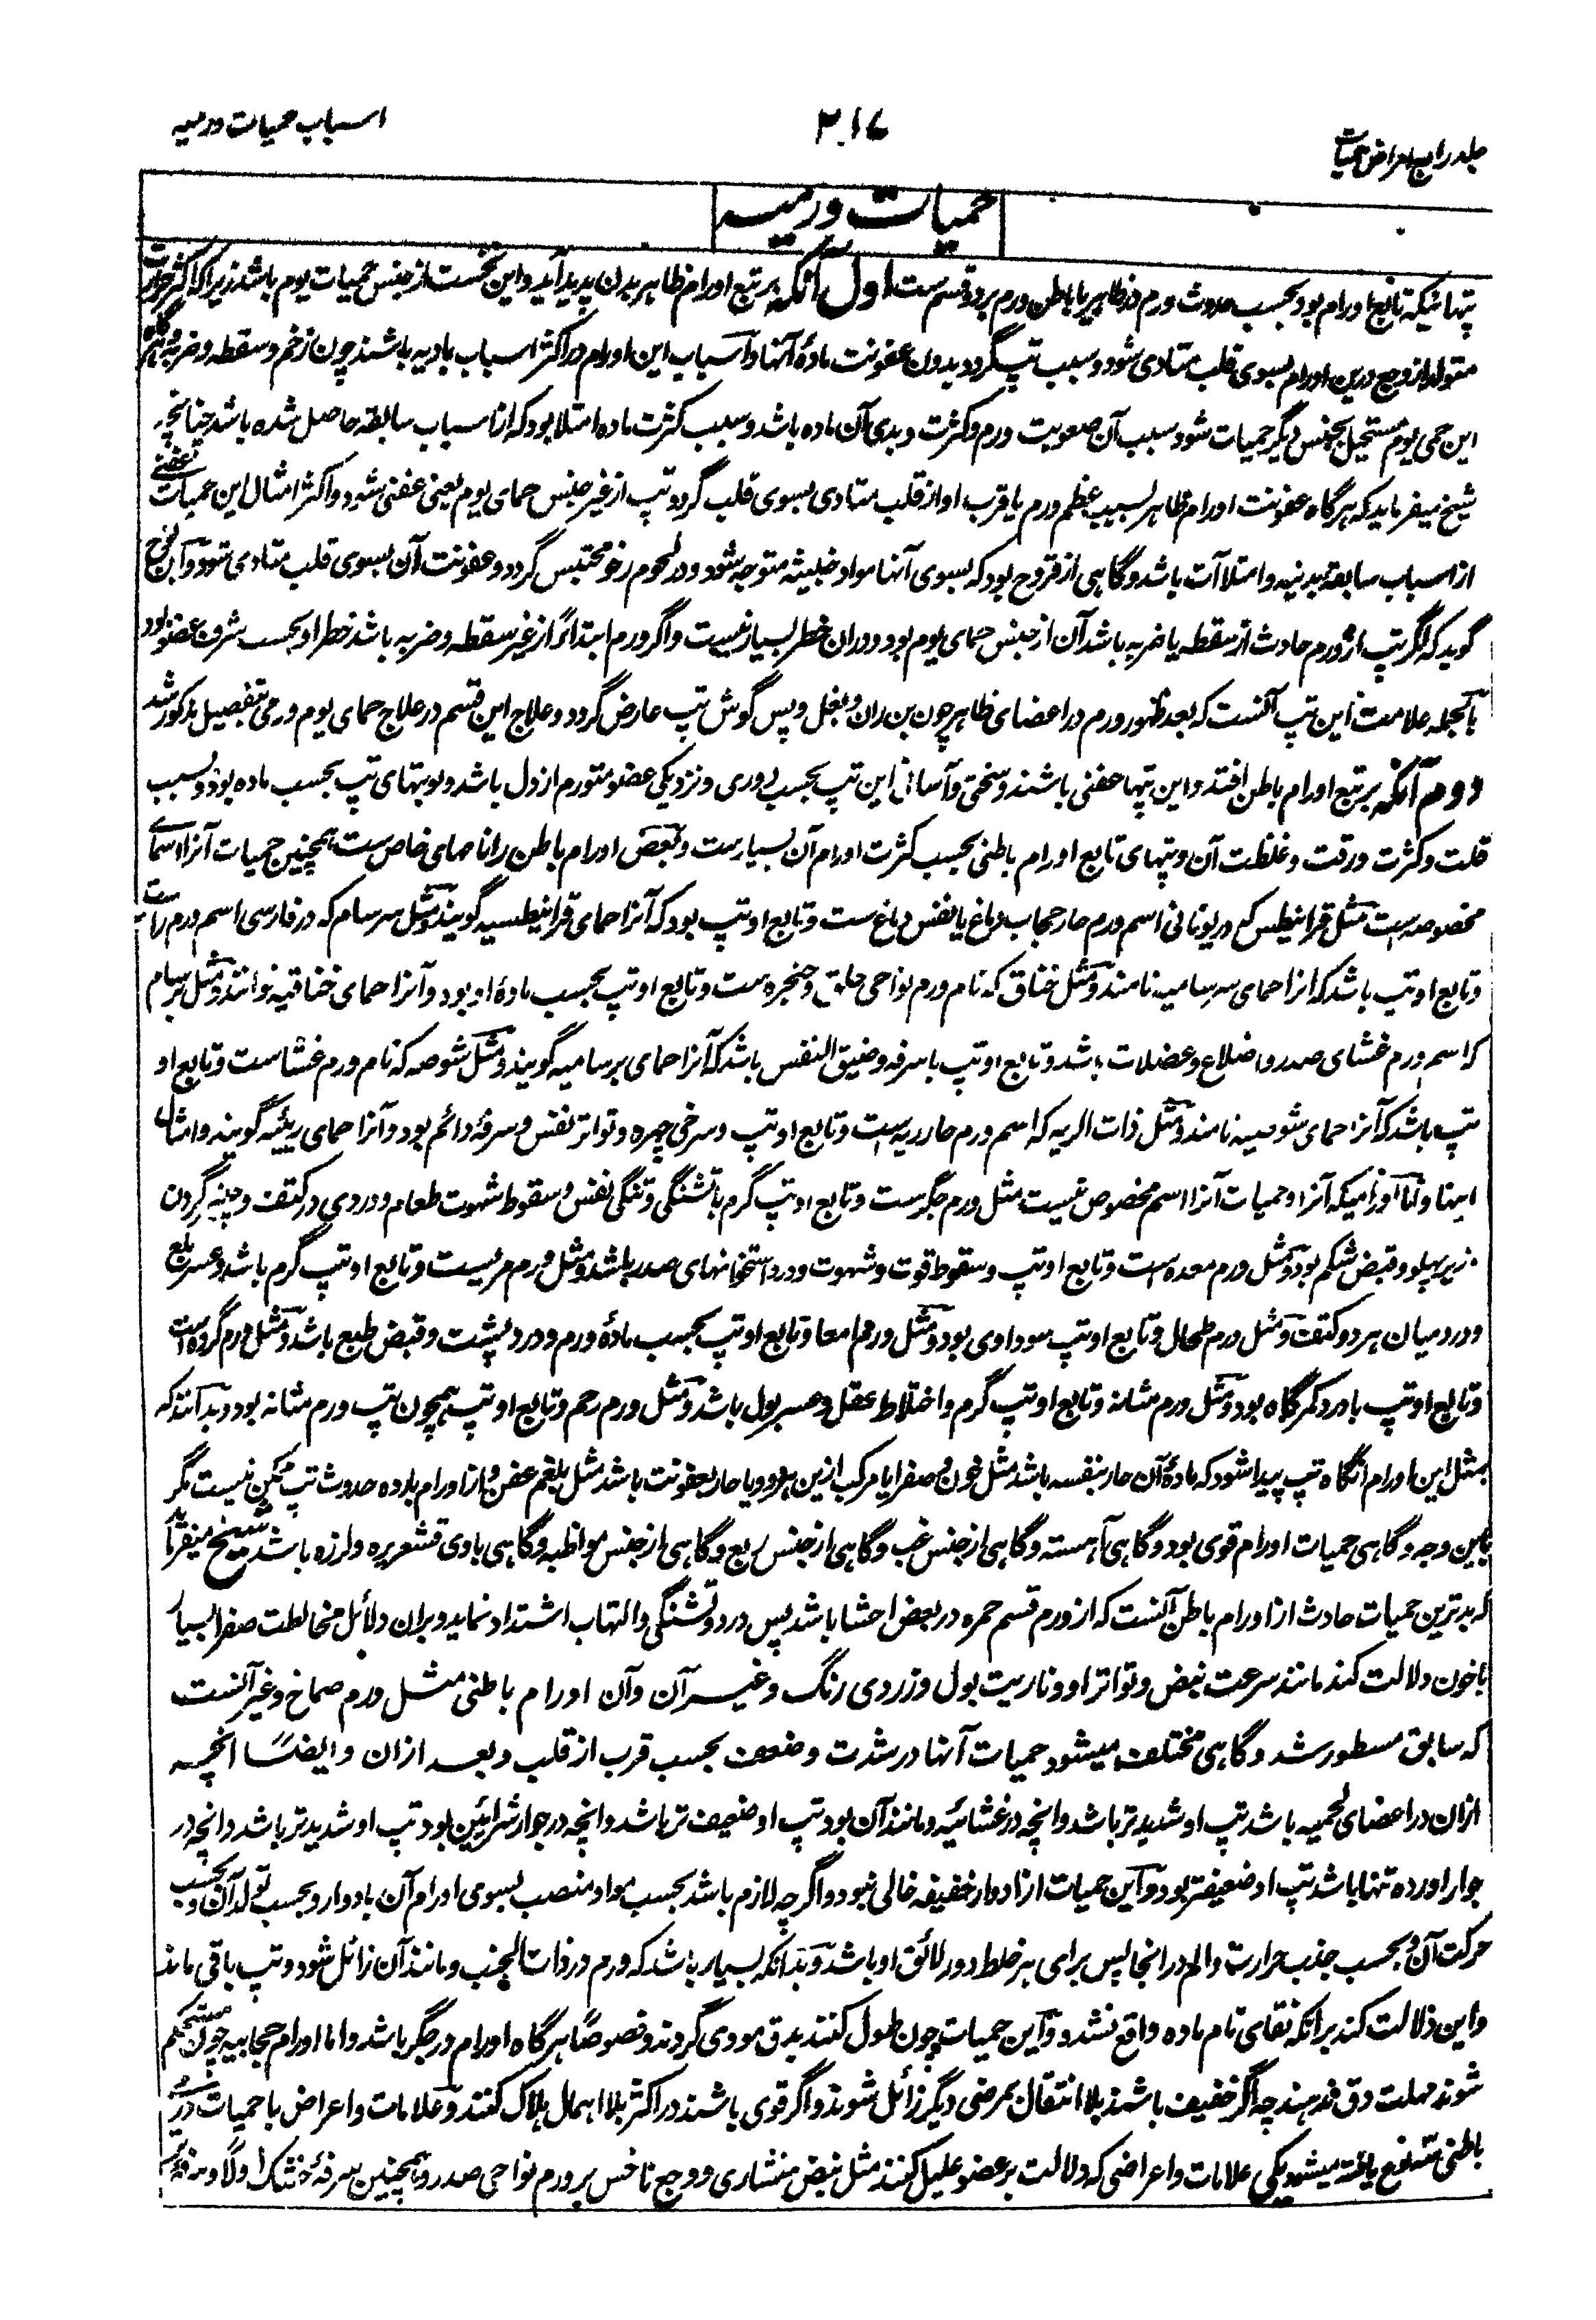 جلد رابع امراض حمیات
۳۱۷
اسباب حمیات ورمیه
حمیات ورمیه
تپهائیکه تابع اورام بود بحسب حدوث ورم در ظاهر یا باطن ورم بر دو قسم ست اول آنکه بر تبع اورام ظاهر بدن پدید آید و این نخست از جنس حمیات یوم باشد زیرا که اکثر حرارت
متولد از وجع درین اورام بسوی قلب متادی شود و سبب تپ گردد بدون عفونت مادهٔ آنها و اسباب این اورام در اکثر اسباب بادیه باشند چون زخم و سقطه و ضربه و گاه
این حمی یوم مستحیل بجنس دیگر حمیات شود سبب آن صعوبت ورم و کثرت و بدی آن ماده باشد و سبب کثرت ماده امتلا بود که از اسباب سابقه حاصل شده باشد چنانچه
شیخ میفرماید که هرگاه عفونت اورام ظاهر بسبب عظم ورم یا قرب او از قلب متادی بسوی قلب گردد تپ از غیر جنس حمای یوم یعنی عفنی شود و اکثر امثال این حمیات عفنی
از اسباب سابقه بدنیه و امتلاآت باشد و گاهی از قروح بود که بسوی آنها مواد خبیثه متوجه شود و در لحوم رخو محتبس گردد و عفونت آن بسوی قلب متادی شود و ابن نوح
گوید که اگر تپ از ورم حادث از سقطه یا ضربه باشد آن از جنس حمای یوم بود و دران خطر بسیار نیست و اگر ورم ابتداءً از غیر سقطه و ضربه باشد خطر او بحسب شرف عضو بود
بالجمله علامت این تپ آنست که بعد ظهور ورم در اعضای ظاهر چون بن ران و بغل و پس گوش تپ عارض گردد و علاج این قسم در علاج حمای یوم ورمی بتفصیل مذکور شد
دوم آنکه بر تبع اورام باطن افتد و این تپها عفنی باشند و سختی و آسانی این تپ بحسب دوری و نزدیکی عضو متورم از دل باشد و نوبتهای تپ بحسب ماده بود و بسبب
قلت و کثرت و رقت و غلظت آن و تپهای تابع اورام باطنی بحسب کثرت اورام آن بسیارست و بعض اورام باطن را نامهای خاص ست همچنین حمیات آنرا اسمای
مخصوصه است مثل قرانیطس که در یونانی اسم ورم حار حجاب دماغ یا نفس دماغ ست و تابع او تپ بود که آنرا حمای قرانیطسیه گویند و مثل سرسام که در فارسی اسم ورم راس ست
و تابع او تپ باشد که آنرا حمای سرسامیه نامند و مثل خناق که نام ورم نواحی حلق و حنجره ست و تابع او تپ بحسب مادهٔ او بود و آنرا حمای خناقیه خوانند و مثل برسام
که اسم ورم غشای صدر و اضلاع و عضلات باشد و تابع او تپ با سرفه و ضیق النفس باشد که آنرا حمای برسامیه گویند و مثل شوصه که نام ورم غشاست و تابع او
تپ باشد که آنرا حمای شوصیه نامند و مثل ذات الریه که اسم ورم حار ریه است و تابع او تپ و سرخی چهره و تواتر نفس و سرفهٔ دائم بود و آنرا حمای ریئیه گویند و امثال
اینها و اما اورامیکه آنرا و حمیات آنرا اسم مخصوص نیست مثل ورم جگرست و تابع او تپ گرم با تشنگی و تنگی نفس و سقوط شهوت طعام و دردی در کتف و چنبر گردن
زیر پهلو و قبض شکم بود و مثل ورم معده است و تابع او تپ و سقوط قوت و شهوت و درد استخوانهای صدر باشد و مثل ورم مریست و تابع او تپ گرم باشد و عسر بلع
و درد میان هر دو کتف و مثل ورم طحال و تابع او تپ سوداوی بود و مثل ورم امعا و تابع او تپ بحسب مادهٔ ورم و درد پشت و قبض طبع باشد و مثل ورم گرده است
و تابع او تپ با درد کمرگاه بود و مثل ورم مثانه و تابع او تپ گرم و اختلاط عقل و عسر بول باشد و مثل ورم رحم و تابع او تپ همچون تپ ورم مثانه بود و بدانند که
بمثل این اورام آنگاه تپ پیدا شود که مادهٔ آن حار بنفسه باشد مثل خون و صفرا یا مرکب ازین هر دو و یا حار بعفونت باشد مثل بلغم عفن و از اورام بارده حدوث تپ ممکن نیست مگر
باین وجه و گاهی حمیات اورام قوی بود و گاهی آهسته و گاهی از جنس غب و گاهی از جنس ربع و گاهی از جنس مواظبه و گاهی بادی قشعریره و لرزه باشد شیخ میفرماید
که بدترین حمیات حادث از اورام باطن آنست که از ورم قسم حمره در بعض احشا باشد پس درد و تشنگی و التهاب اشتداد نماید و بران دلائل مخالطت صفرا بسیار
با خون دلالت کند مانند سرعت نبض و تواتر او و ناریت بول و زردی رنگ و غیر آن و آن اورام باطنی مثل ورم صماخ و غیر آنست
که سابق مسطور شد و گاهی مختلف میشود حمیات آنها در شدت و ضعف بحسب قرب از قلب و بعد ازان و ایضًا انچه
ازان در اعضای لحمیه باشد تپ او شدیدتر باشد و انچه در غشائیه و مانند آن بود تپ او ضعیف تر باشد و انچه در جوار شرائین بود تپ او شدیدتر باشد و انچه در
جوار اورده تنها باشد تپ او ضعیفتر بود و این حمیات از ادوار خفیفه خالی نبود و اگرچه لازم باشد بحسب مواد منصب بسوی اورام آن بادوار و بحسب تولد آن و بحسب
حرکت آن و بحسب جذب حرارت و الم در انجا پس برای هر خلط دور لائق او باشد و بدانکه بسیار باشد که ورم در ذات الجنب و مانند آن زائل شود و تپ باقی ماند
و این دلالت کند برانکه نقای تام ماده واقع نشد و این حمیات چون طول کنند بدق مودی گردند و خصوصًا هرگاه اورام در جگر باشد و اما اورام حجابیه چون مستحکم
شوند مهلت دق ندهند چه اگر خفیف باشند بلا انتقال بمرضی دیگر زائل شوند و اگر قوی باشند در اکثر بلا اهمال هلاک کنند و علامات و اعراض با حمیات
باطنی متنوع یافته میشود یکی علامات و اعراضی که دلالت بر عضو علیل کنند مثل نبض منشاری و وجع ناخس بر ورم نواحی صدر و همچنین سرفهٔ خشک اولًا و